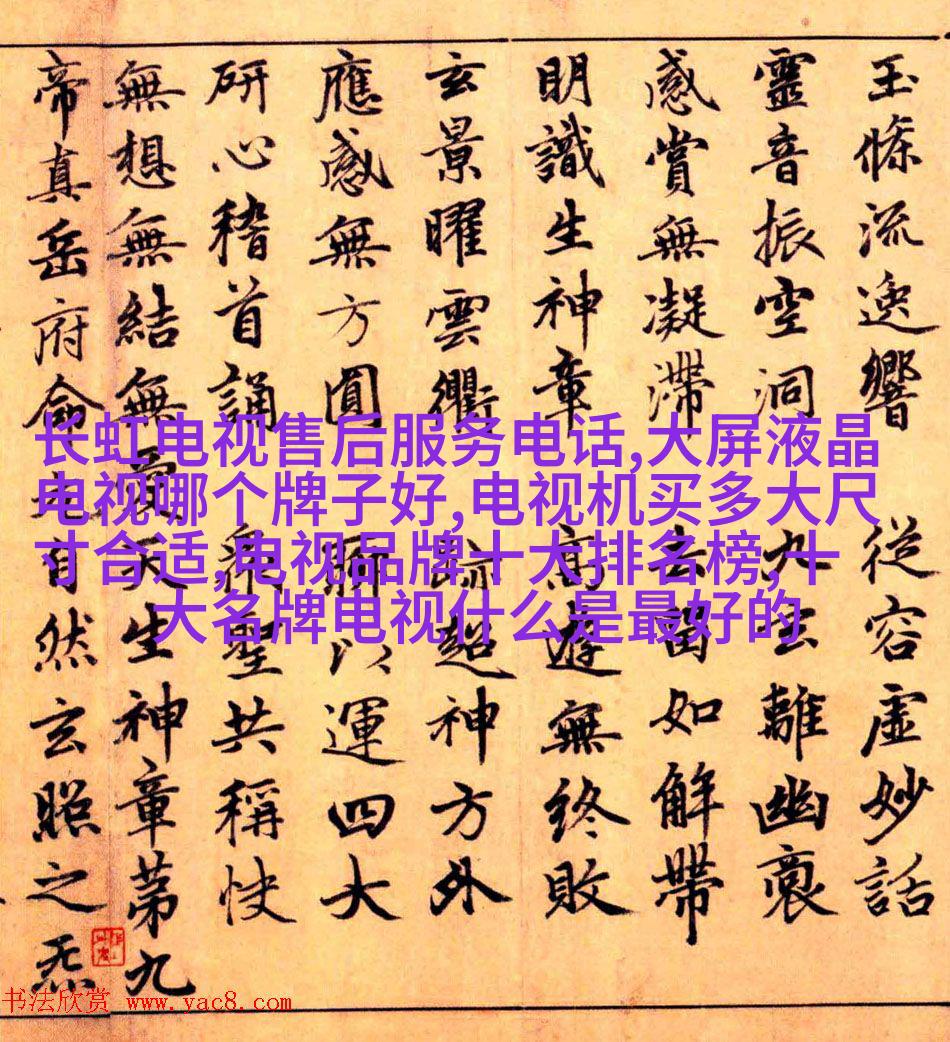 玉條流逸響 從容虛妙話
靈音振空洞 九玄離幽
感賞無凝滯 去留如解帶
明識生神章 高遊無終敗
玄景曜雲衢 跡超神方外
應感無方圓 聊以運四大
研心稽首誦 衆聖共稱快
無想無結無愛天生神章第九
帝真岳府 元自然玄照之炁
长虹电视售后服务电话,大屏液晶
电视哪个牌子好,电视机买多大尺
寸合适,电视品牌十大排名榜,十
大名牌电视什么是最好的
书法欣赏 www.yac8.com